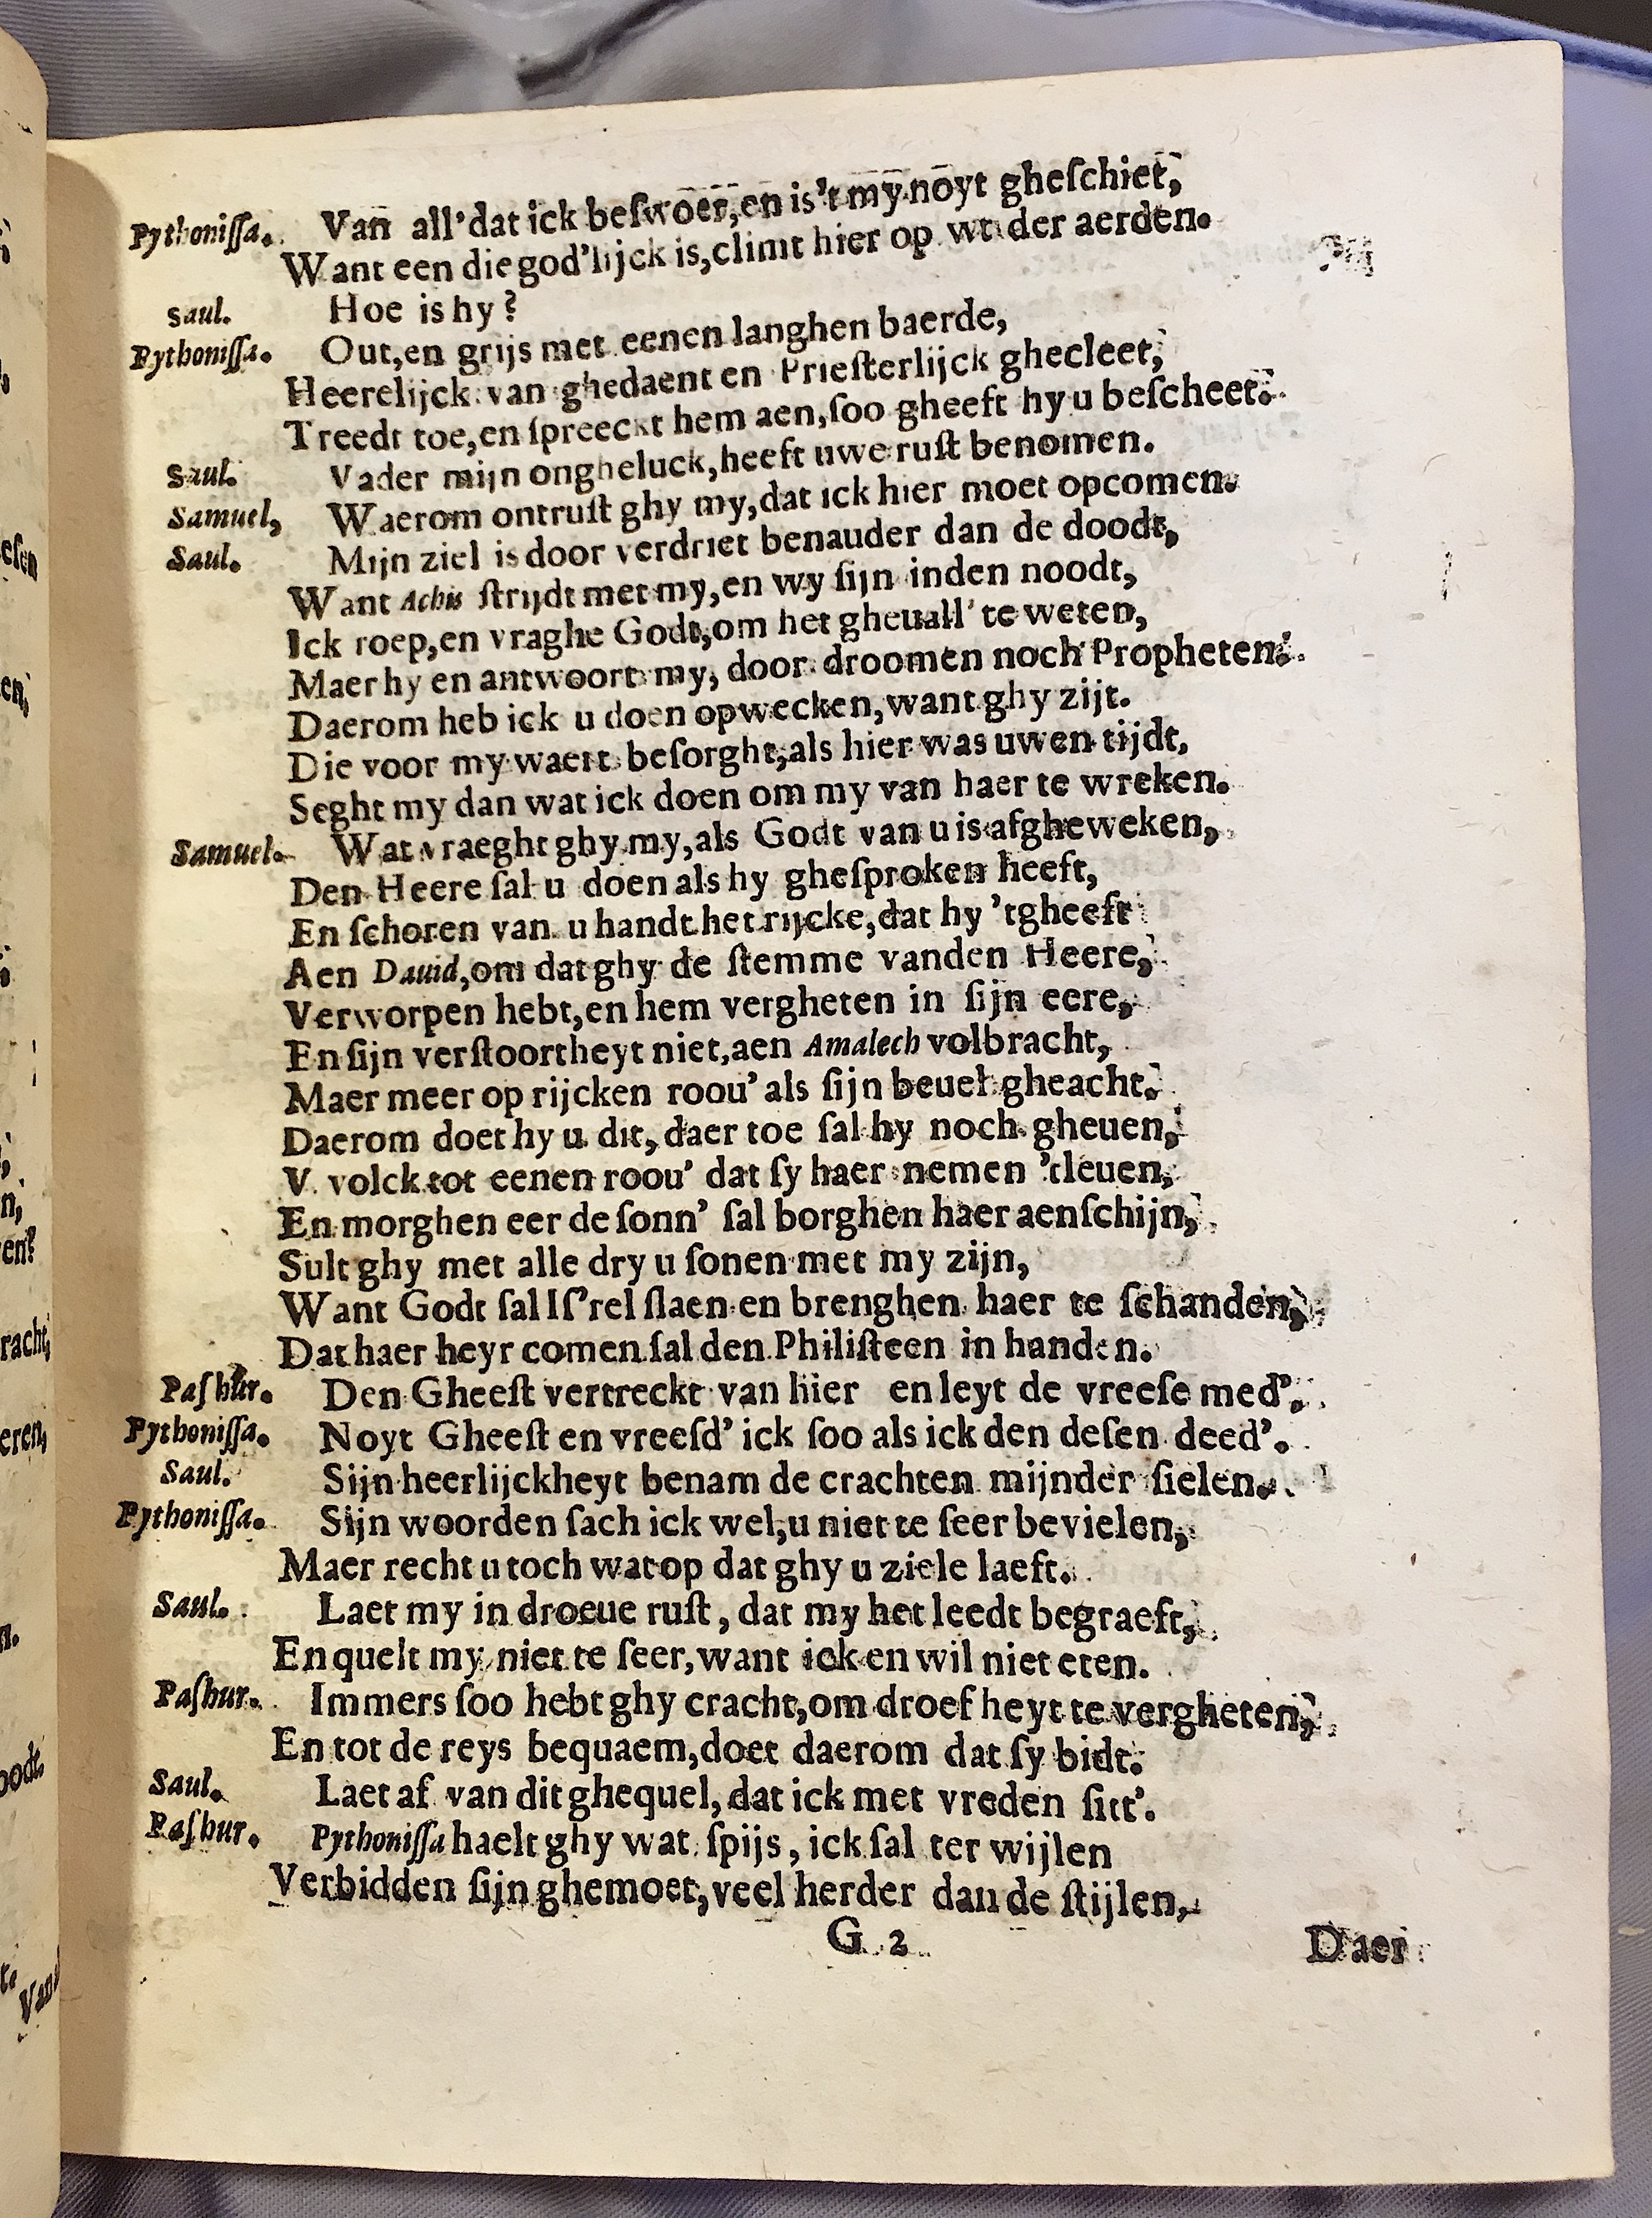 Pythonissa. Van all' dat ick beswoer, en is't my noyt gheschiet,
Want een die god'lijck is, climt hier op wt der aerden.
Saul. Hoe is hy?
Pythonissa. Out, en grijs met eenen langhen baerde,
Heerelijck van ghedaent en Priesterlijck ghecleet,
Treedt toe, en spreeckt hem aen, soo gheeft hy u bescheet.
Saul. Vader mijn ongheluck, heeft uwe rust benomen.
Samuel, Waerom ontrust ghy my, dat ick hier moet opcomen.
Saul. Mijn ziel is door verdriet benauder dan de doodt,
Want Achis strijdt met my, en wy sijn inden noodt,
Ick roep, en vraghe Godt, om het gheuall' te weten,
Maer hy en antwoort my, door droomen noch Propheten.
Daerom heb ick u doen opwecken, want ghy zijt.
Die voor my waert besorght, als hier was uwen tijdt,
Seght my dan wat ick doen om my van haer te wreken.
Samuel. Wat vraeght ghy my, als Godt van u is afgheweken,
Den Heere sal u doen als hy ghesproken heeft,
En schoren van u handt het rijcke, dat hy 'tgheeft
Aen Dauid, om dat ghy de stemme vanden Heere,
Verworpen hebt, en hem vergheten in sijn eere,
En sijn verstoortheyt niet, aen Amalech volbracht,
Maer meer op rijcken roou' als sijn beuel gheacht.
Daerom doet hy u dit, daer toe sal hy noch gheuen,
V volck tot eenen roou' dat sy haer nemen 'tleuen,
En morghen eer de sonn' sal borghen haer aenschijn,
Sult ghy met alle dry u sonen met my zijn,
Want Godt sal Is'rel slaen en brenghen haer te schanden,
Dat haer heyr comen sal den Philisteen in handen.
Pashur. Den Gheest vertreckt van hier en leyt de vreese med'.
Pythonissa. Noyt Gheest en vreesd' ick soo als ick den desen deed'.
Saul. Sijn heerlijckheyt benam de crachten mijnder sielen.
Pythonissa. Sijn woorden sach ick wel, u niet te seer bevielen,
Maer recht u toch wat op dat ghy u ziele laeft.
Saul. Laet my in droeue rust, dat my het leedt begraeft,
En quelt my niet te seer, want ick en wil niet eten.
Pashur. Immers soo hebt ghy cracht, om droefheyt te vergheten,
En tot de reys bequaem, doet daerom dat sy bidt.
Saul. Laet af van dit ghequel, dat ick met vreden sitt'.
Pashur. Pythonissa haelt ghy wat spijs, ick sal ter wijlen
Verbidden sijn ghemoet, veel herder dan de stijlen,
G 2
Daer